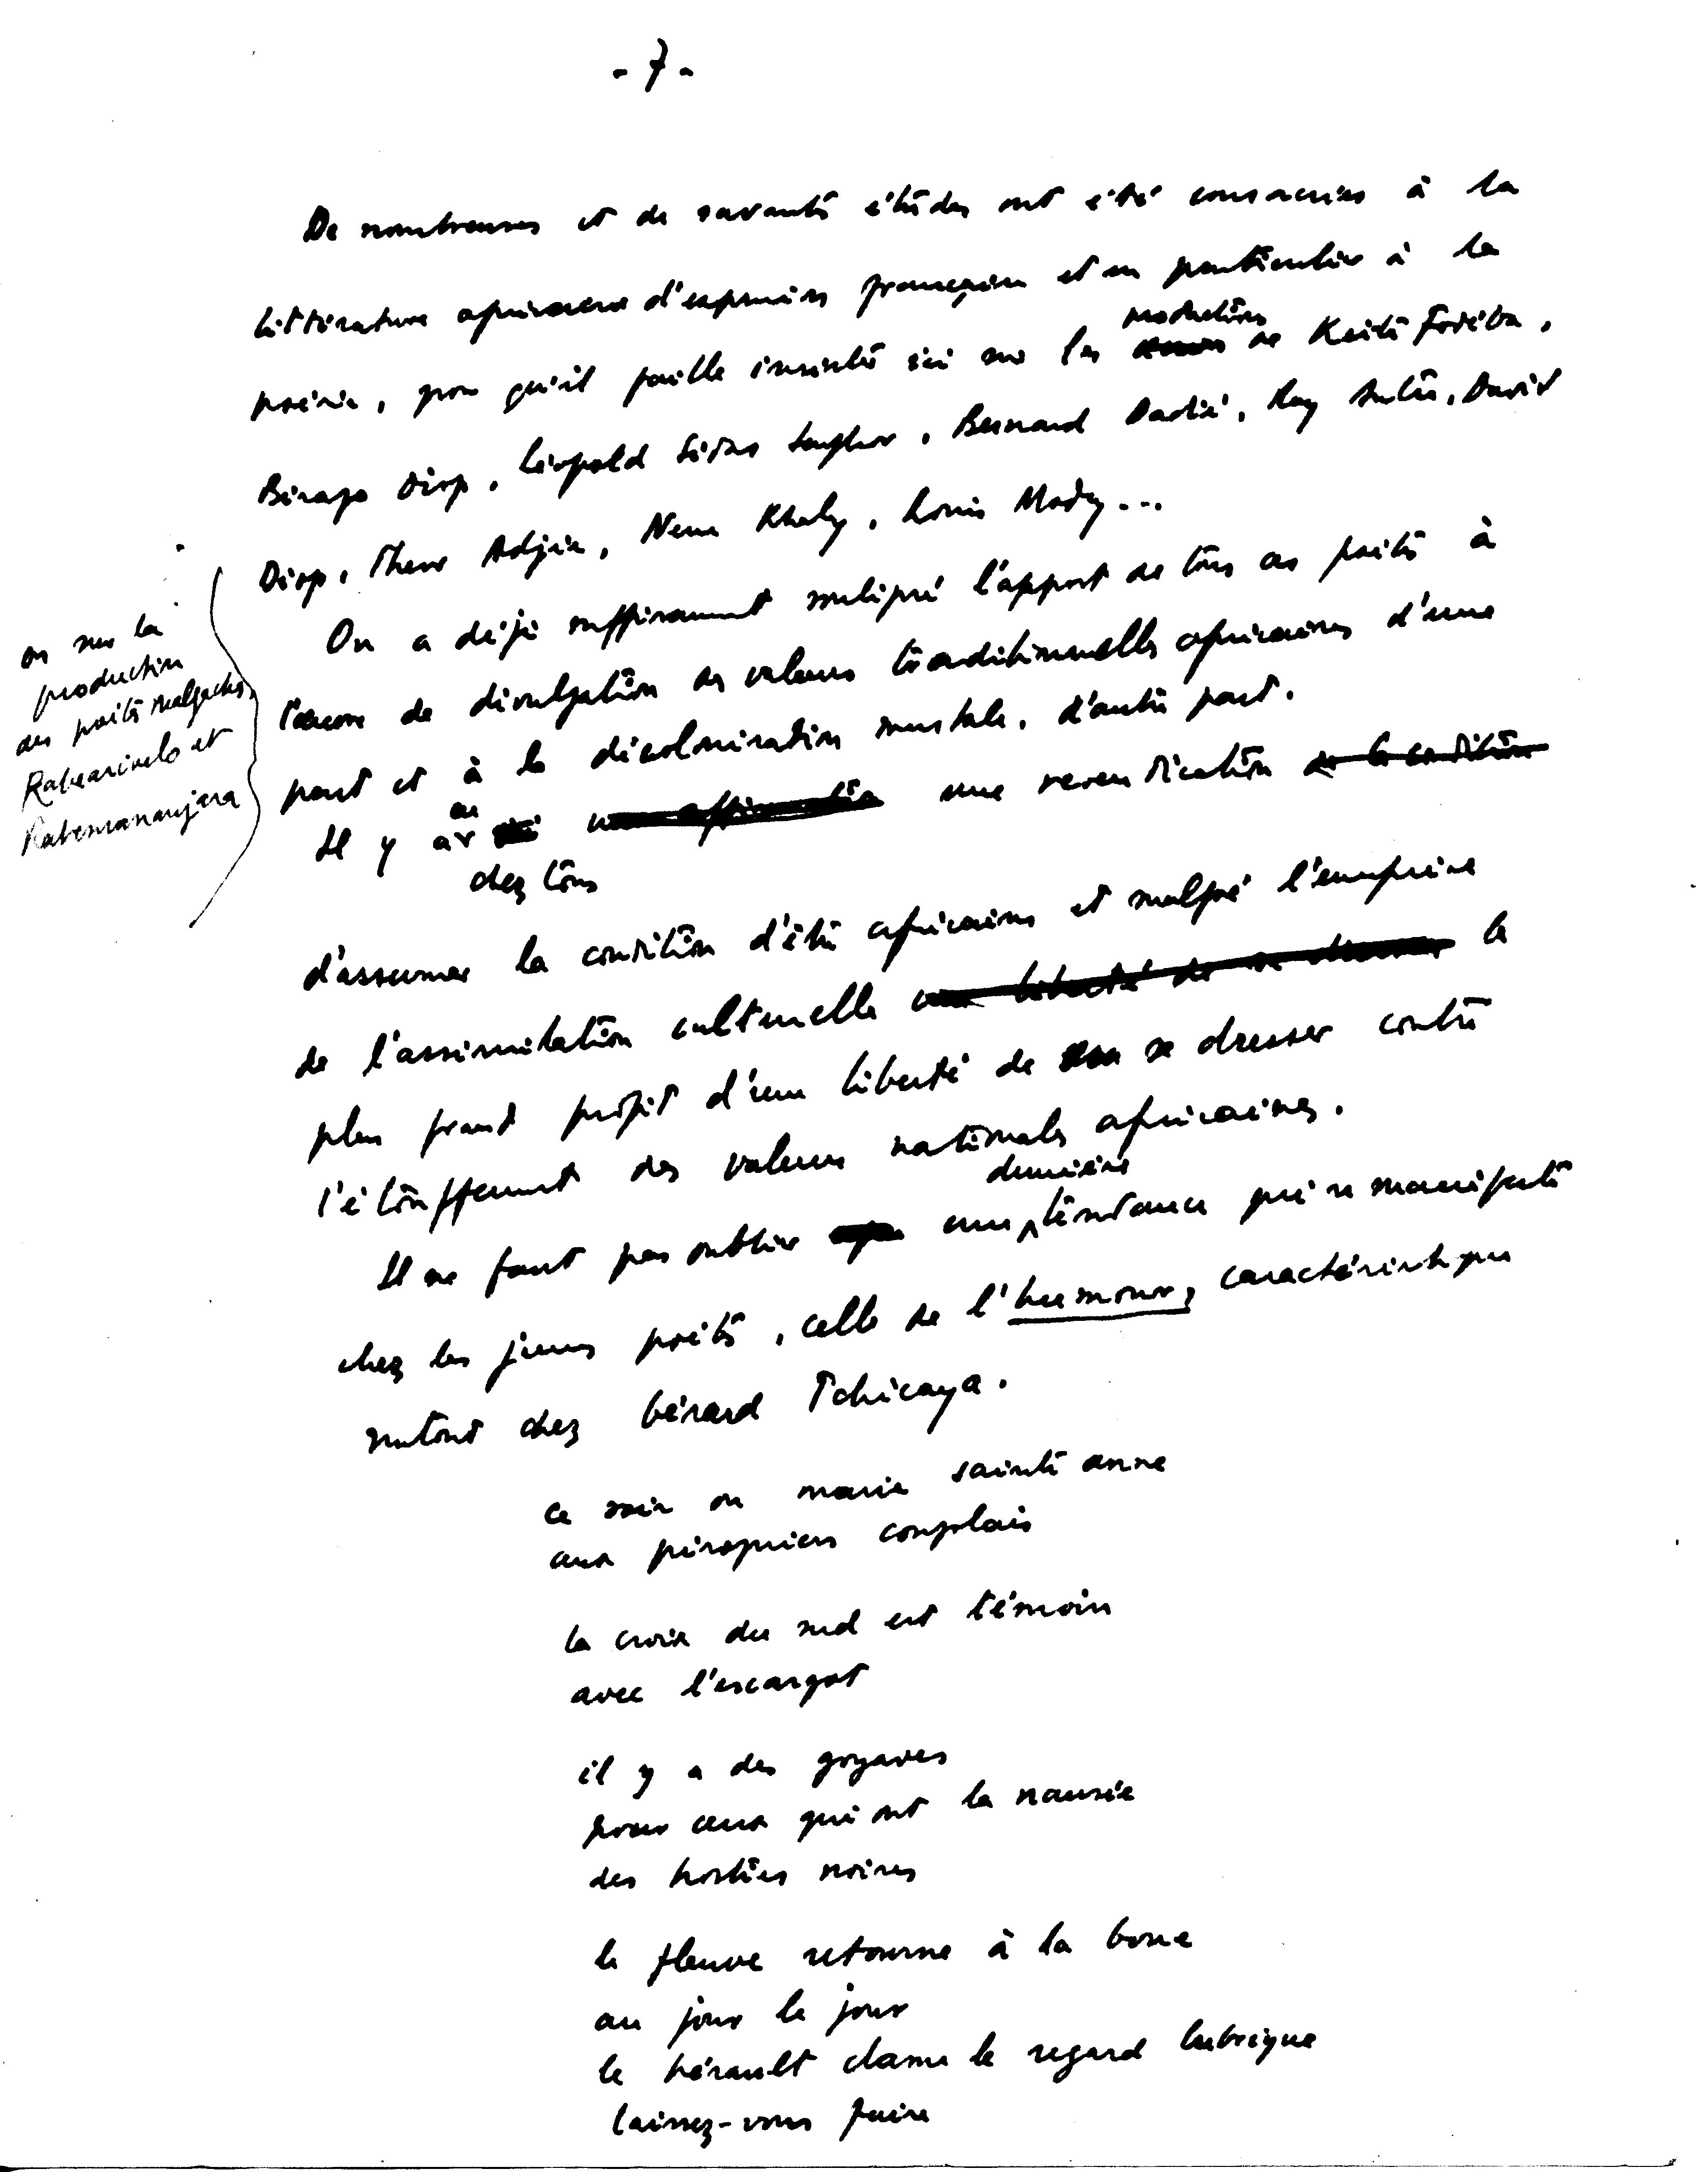 - 7 -
De nombreuses et de savantes études ont été consacrées à la
littérature africaine d'expression française et en particulier à la
productions
poésie, pour qu'il faille insister ici sur les de Keita Fodéba,
Birago Diop, Léopold Sédar Senghor, Bernard Dadié, Ray Autra, David
Diop, Adjie, Nene Khaly, Louis Mody...
On a déjà suffisamment souligné l'apport de tous ces poètes à
l'œuvre de divulgation des valeurs traditionnelles africaines d'une
part et à la décolonisation mentale, d'autre part.
ou sur la
production
des poètes malgaches,
Rabearivelo et
Rabemananjara
Il y a une affirmation une revendication de la condition
chez tous
d'assumer la condition d'être africains et malgré l'emprise
de l'assimilation culturelle une liberté de se dresser le
plus grand profit d'une liberté de se dresser contre
l'étouffement des valeurs nationales africaines.
dernière
Il ne faut pas oublier une tendance qui se manifeste
chez les jeunes poètes, celle de l'humour, caractéristique
surtout chez Gérard Tchicaya.
ce soir ou marie sainte anne
aux piroguiers congolais
la croix du sud est témoin
avec l'escargot
il y a des goyaves
pour ceux qui ont la nausée
des hosties noires
le fleuve retourne à la boue
au jour le jour
le hérault clame le regard lubrique
laissez-vous faire